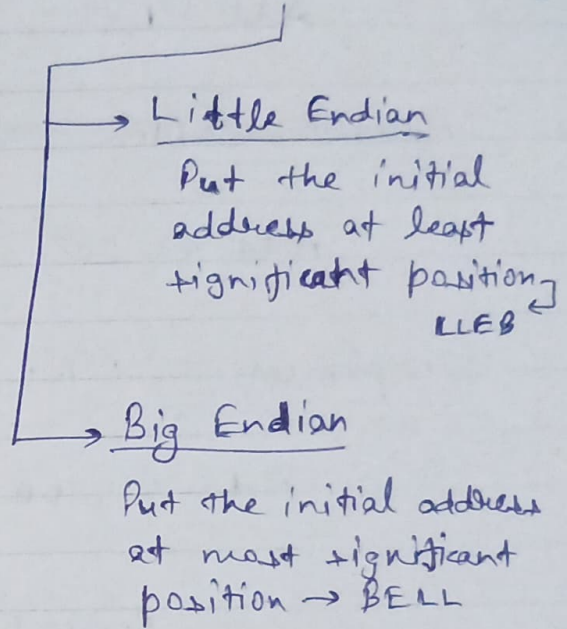 Little Endian
Put the initial
address at least
significant position
LLEB
Big Endian
Put the initial address
at most significant
position → BELL